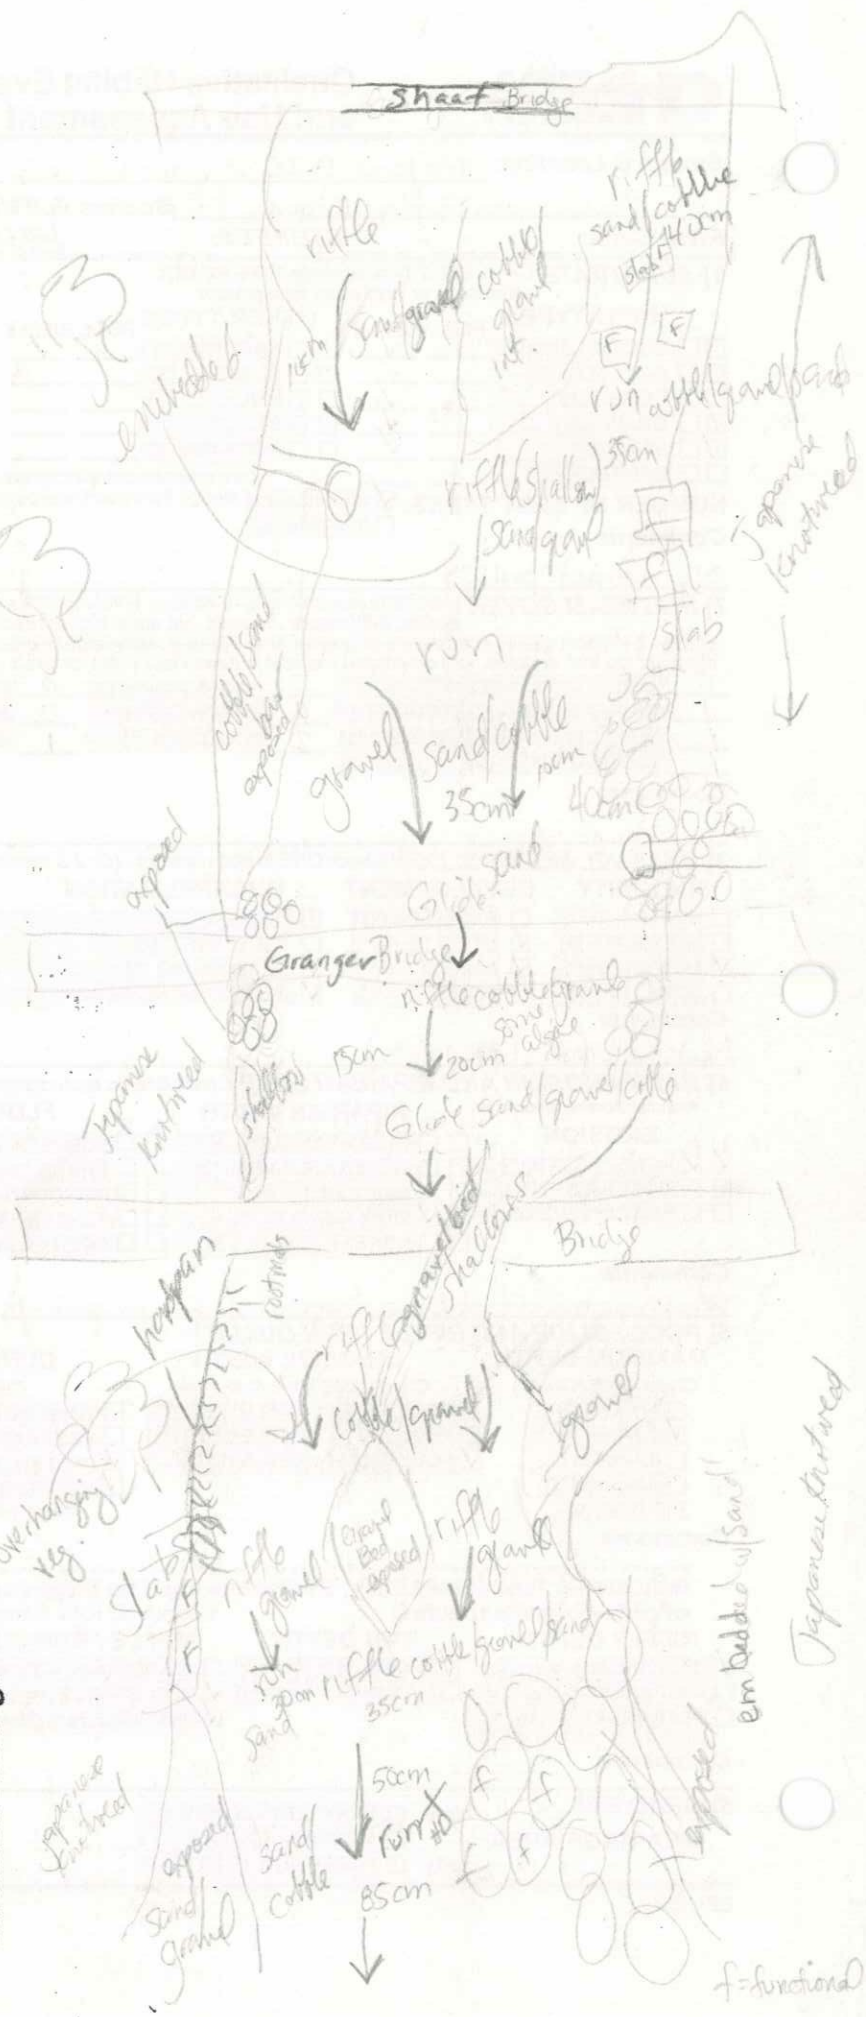 Shaaf Bridge
riffle
sand/cobble
40cm
slab
F
F
riffle
15cm
sand/gravel
cobble/
gravel
int.
run cobble/gravel/sand
embedded
35cm
riffle (shallow)
sand/grav
f
f
slab
Japanese
knotweed
run
cobble/sand
bar
exposed
gravel
sand/cobble
10cm
35cm
40cm
sand
Glide
exposed
Granger Bridge
riffle cobble/gravel
some
algae
15cm
20cm
Japanese
Knotweed
shallow
Glide sand/gravel/cobble
gravel bed
shallows
Bridge
hardpan
rootmats
riffle
cobble/gravel
gravel
overhanging
veg.
slab
F
F
riffle
gravel
Gravel
Bed
exposed
riffle
gravel
embedded w/sand
Japanese Knotweed
run
30cm
sand
riffle cobble/gravel/sand
35cm
50cm
run
85cm
f
f
f
f
exposed
Japanese
Knotweed
exposed
sand/
gravel
sand/
cobble
f=functional